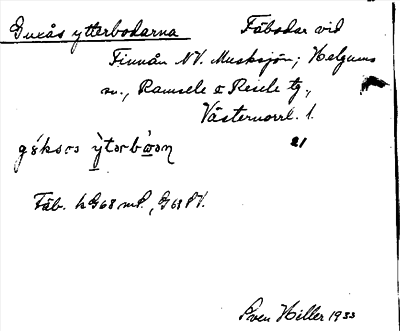 Guxås ytterbodarna Fäbodar vid
Finnån NV. Musksjön; Helgums
sn., Ramsele o Resele tg.,
Västernorrl. l.
21
Fäb. k G68 mP., G68 PV.
Sven Hiller 1933